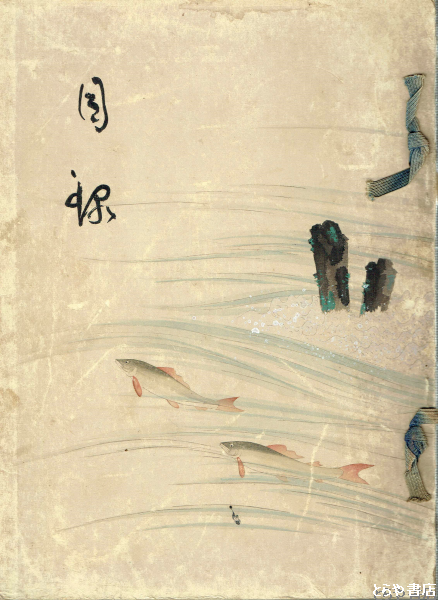 図
録
とらや書店